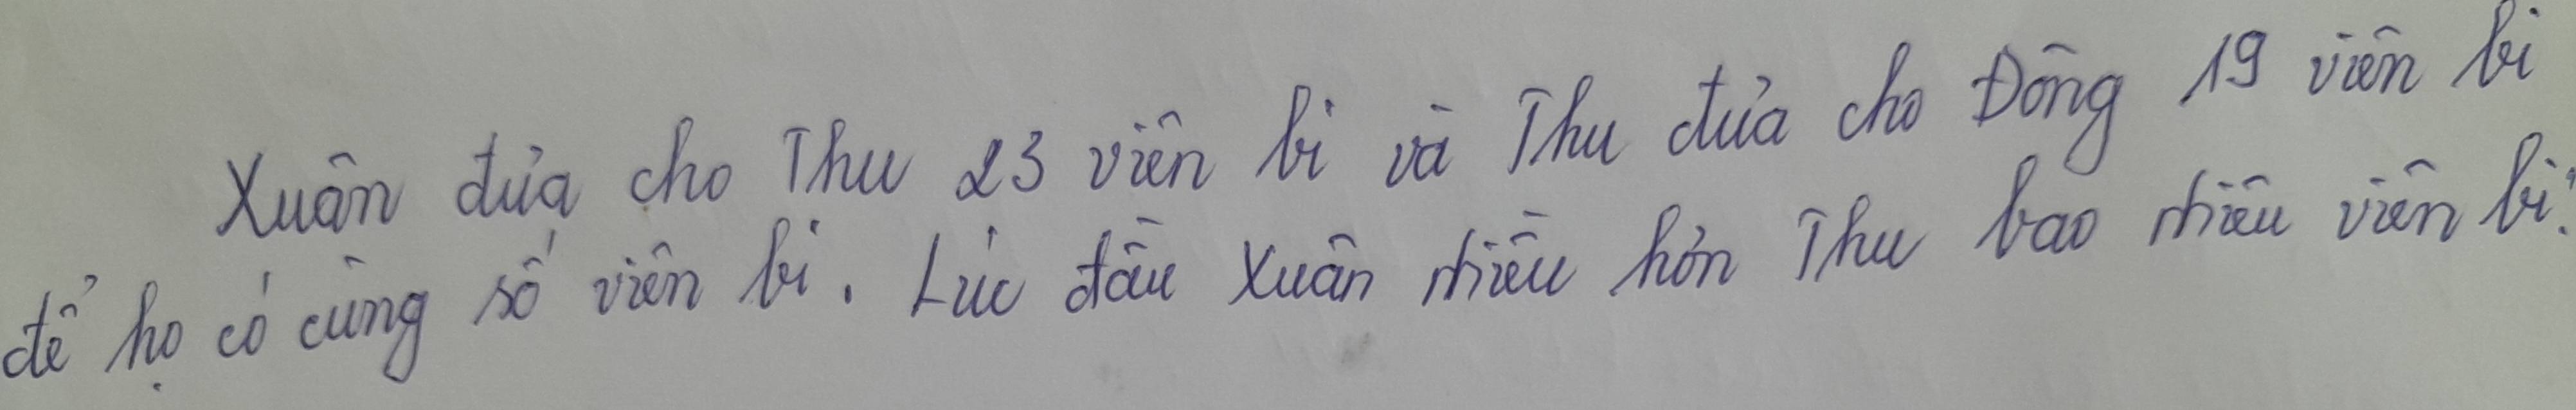 Xuân đưa cho Thu 23 viên bi và Thu đưa cho Đông 19 viên bi
để họ có cùng số viên bi. Lúc đầu Xuân nhiều hơn Thu bao nhiêu viên bi?